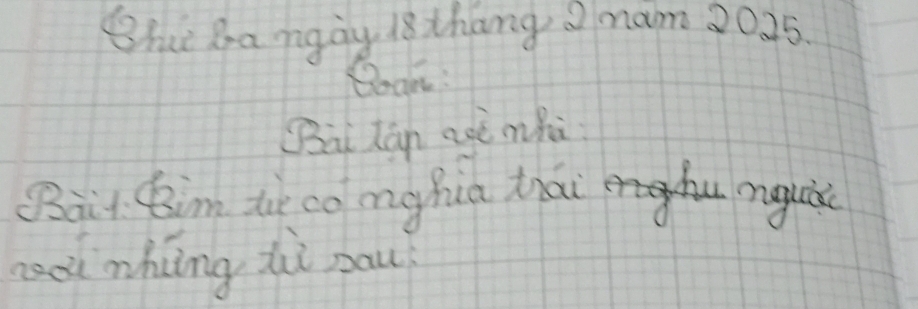 Thứ Ba ngày 18 tháng 2 năm 2025.
Toán:
Bài tập về nhà:
Bài 1. Tìm từ có nghĩa trái ngược
với những từ sau: